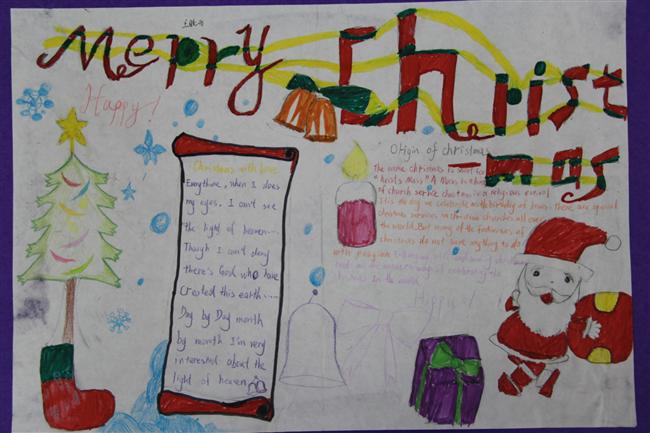 Merry Christ
-mas
Happy!
Christmas with love
Everytime, when I close
my eyes. I can't see
the light of heaven...
Though I can't deny
there's God who have
Created this earth....
Day by Day month
by month I'm very
interested about the
light of heaven
Origin of christmas
The name christmas is short for
"Christ's Mass". A Mass is
of church service christmas is a religious
It is the day we celebrate as the birthday of Jesus. There are special
christmas services in christian churches all over
the world. But many of the festivities of
christmas do not have anything to do
with religion
festival in the world
Happy!